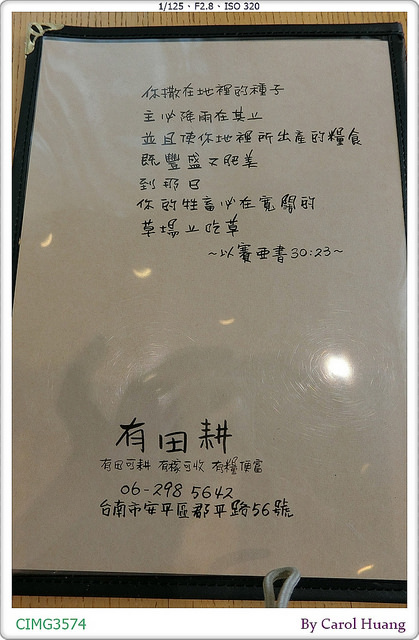 1/125 · F2.8 · ISO 320
你撒在地裡的種子
主必降雨在其上
並且使你地裡所出產的糧食
既豐盛又肥美
到那日
你的牲畜必在寬闊的
草場上吃草
~以賽亞書30:23~
有田耕
有田可耕 有稼可收 有糧便富
06-298 5642
台南市安平區郡平路56號
CIMG3574
By Carol Huang